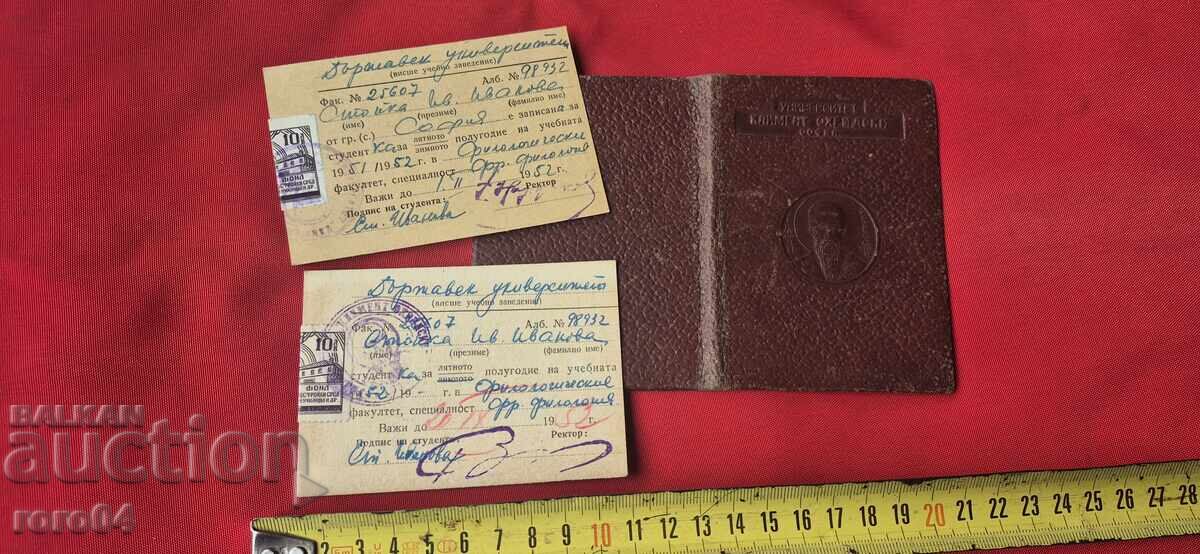 Държавен университет
(висше учебно заведение)
Фак. № 25607 Алб. № 98932
Стойка Ив. Иванова
(име) (презиме) (фамилно име)
от гр. (с.) София е записана за
студент ка за лятното зимното полугодие на учебната
1951/1952 г. в Филологически
факултет, специалност Фр. филология
Важи до 1 II 1952 г.
Подпис на студента: Ректор
Ст. Иванова
10
ФОНД
Държавен университет
(висше учебно заведение)
Фак. № 25607 Алб. № 98932
Стойка Ив. Иванова
(име) (презиме) (фамилно име)
студент ка за лятното зимното полугодие на учебната
1952/19 - г. в Филологически
факултет, специалност Фр. филология
Важи до 1953 г.
Подпис на студента: Ректор:
Ст. Иванова
10
ФОНД
УНИВЕРСИТЕТ
КЛИМЕНТ ОХРИДСКИ
СОФИЯ
BALKAN
auction
roro64
2 3 4 5 6 7 8 9 10 11 12 13 14 15 16 17 18 19 20 21 22 23 24 25 26 27 28